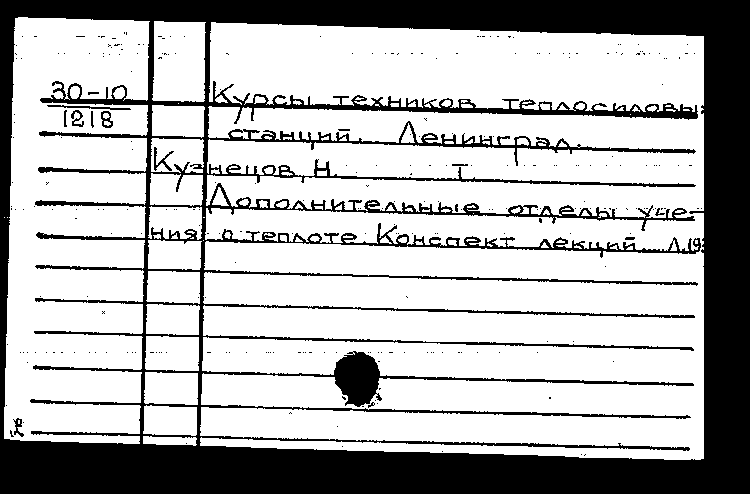 30-10
1218
Курсы техников теплосиловы
станций. Ленинград.
Кузнецов, Н. Т.
Дополнительные отделы уче-
ния о теплоте. Конспект лекций. Л. 193